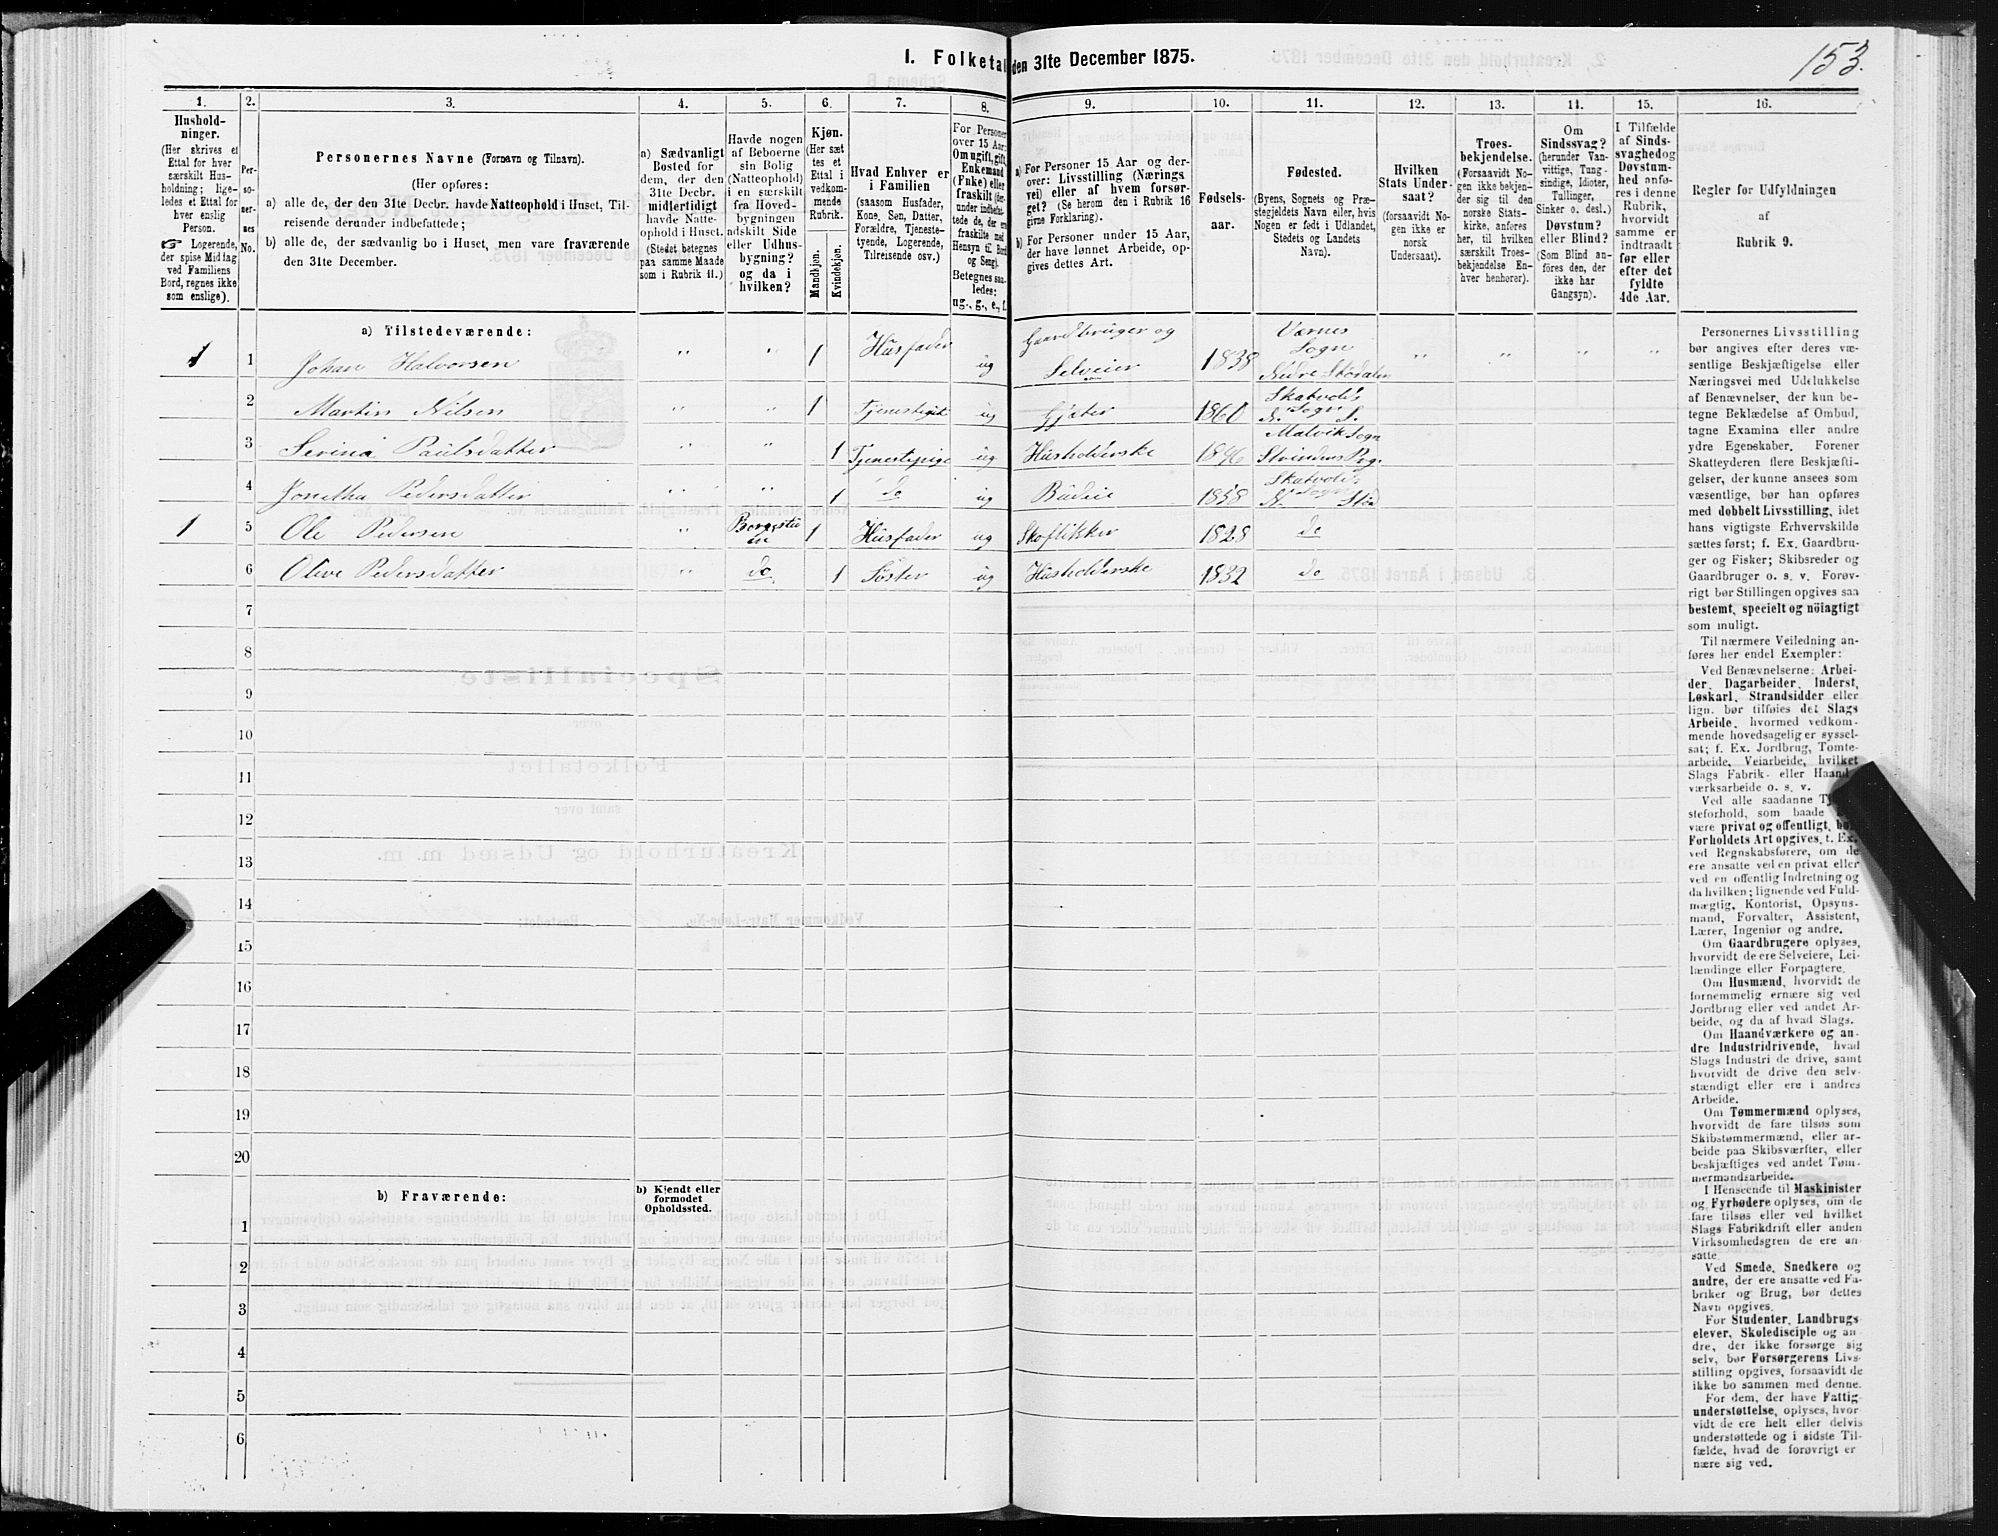 I. Folketal den 31te December 1875.
153.
1. 2. 3. 4. 5. 6. 7. 8. 9. 10. 11. 12. 13. 14. 15. 16.
Hushold-
ninger.
(Her skrives et
Ettal for hver
særskilt Hus-
holdning; lige-
ledes et Ettal for
hver enslig
Person.
☞ Logerende,
der spise Middag
ved Familiens
Bord, regnes ikke
som enslige).
Per-
so-
ner-
nes
No.
Personernes Navne (Fornavn og Tilnavn).
(Her opføres:
a) alle de, der den 31te Decbr. havde Natteophold i Huset, Til-
reisende derunder indbefattede;
b) alle de, der sædvanlig bo i Huset, men vare fraværende
den 31te December.
a) Sædvanligt
Bosted for
dem, der den
31te Decbr.
midlertidigt
havde Natte-
ophold i Huset.
(Stedet betegnes
paa samme Maade
som i Rubrik 11.)
Havde nogen
af Beboerne
sin Bolig
(Natteophold)
i en særskilt
fra Hoved-
bygningen
adskilt Side
eller Udhus-
bygning?
og da i
hvilken?
Kjøn.
(Her sæt
tes et
Ettal i
vedkom-
mende
Rubrik.
Mandkjøn.
Kvindekjøn.
Hvad Enhver er
i Familien
(saasom Husfader,
Kone, Søn, Datter,
Forældre, Tjeneste-
tyende, Logerende,
Tilreisende osv.)
For Personer
over 15 Aar:
Om ugift, gift,
Enkemand
(Enke) eller
fraskilt (der-
under indbefat-
tede de, der ere
fraskilte med
Hensyn til Bord
og Seng).
Betegnes saa-
ledes:
ug., g., e., f.
a) For Personer 15 Aar og der-
over: Livsstilling (Nærings
vei) eller af hvem forsør-
get? (Se herom den i Rubrik 16
givne Forklaring).
b) For Personer under 15 Aar,
der have lønnet Arbeide, op-
gives dettes Art.
Fødsels-
aar.
Fødested.
(Byens, Sognets og Præ-
stegjeldets Navn eller, hvis
Nogen er født i Udlandet,
Stedets og Landets
Navn).
Hvilken
Stats Under-
saat?
(forsaavidt No-
gen ikke er
norsk
Undersaat).
Troes-
bekjendelse.
(Forsaavidt No-
gen ikke bekjen-
der sig til den
norske Stats-
kirke, anføres
her, til hvilken
særskilt Troes-
bekjendelse En-
hver henhører).
Om
Sindssvag?
(herunder Van-
vittige, Tung-
sindige, Idioter,
Tullinger,
Sinker o. desl.)
Døvstum?
eller Blind?
(Som Blind an-
føres den, der
ikke har
Gangsyn).
I Tilfælde
af Sinds-
svaghed og
Døvstum-
hed anfø-
res i denne
Rubrik,
hvorvidt
samme er
indtraadt
før eller
efter det
fyldte
4de Aar.
Regler for Udfyldningen
af
Rubrik 9.
a) Tilstedeværende:
1 1 Johan Halvorsen " " 1 Husfader ug Gaardbruger og Selveier 1838 Værnes Sogn Nedre Stördalen " " " "
2 Martin Nilsen " " 1 Tjenestegut ug Gjæter 1860 Skatvolds Sogn N. S.
3 Serina Paulsdatter " " 1 Tjenestepige ug Husholderske 1846 Malvik Sogn Strindens Prg.
4 Jonetha Pedersdatter " " 1 do ug Budeie 1858 Skatvolds Sogn N. Stö
1 5 Ole Pedersen " Borgestuen 1 Husfader ug Skoflikker 1828 do
6 Olive Pedersdatter " do 1 Søster ug Husholderske 1832 do
7
8
9
10
11
12
13
14
15
16
17
18
19
20
b) Fraværende:
b) Kjendt eller
formodet
Opholdssted.
1
2
3
4
5
6
Personernes Livsstilling
bør angives efter deres væ-
sentlige Beskjæftigelse eller
Næringsvei med Udelukkelse
af Benævnelser, der kun be-
tegne Beklædelse af Ombud,
tagne Examina eller andre
ydre Egenskaber. Forener
Skatteyderen flere Beskjæfti-
gelser, der kunne ansees som
væsentlige, bør han opføres
med dobbelt Livsstilling, idet
hans vigtigste Erhvervskilde
sættes først; f. Ex. Gaardbru-
ger og Fisker; Skibsreder og
Gaardbruger o. s. v. Forøv-
rigt bør Stillingen opgives saa
bestemt, specielt og nöiagtigt
som muligt.
Til nærmere Veiledning an-
føres her endel Exempler:
Ved Benævnelserne: Arbei-
der, Dagarbeider, Inderst,
Løskarl, Strandsidder eller
lign. bør tilføies det Slags
Arbeide, hvormed vedkom-
mende hovedsagelig er syssel-
sat; f. Ex. Jordbrug, Tomte-
arbeide, Veiarbeide, hvilket
Slags Fabrik- eller Haand-
værksarbeide o. s. v.
Ved alle saadanne
steforhold, som baade
være privat og offentligt,
Forholdets Art opgives, t. Ex.
ved Regnskabsførere, om de
ere ansatte ved en privat eller
ved en offentlig Indretning og
da hvilken; lignende ved Fuld-
mægtig, Kontorist, Opsyns-
mand, Forvalter, Assistent,
Lærer, Ingeniør og andre.
Om Gaardbrugere oplyses,
hvorvidt de ere Selveiere, Lei-
lændinge eller Forpagtere.
Om Husmænd, hvorvidt de
fornemmelig ernære sig ved
Jordbrug eller ved andet Ar-
beide, og da af hvad Slags.
Om Haandværkere og an-
dre Industridrivende, hvad
Slags Industri de drive, samt
hvorvidt de drive den selv-
stændigt eller ere i andres
Arbeide.
Om Tømmermænd oplyses,
hvorvidt de fare tilsøs som
Skibstømmermænd, eller ar-
beide paa Skibsværfter, eller
beskjæftiges ved andet Tøm-
mermandsarbeide.
I Henseende til Maskinister
og Fyrbødere oplyses, om de
fare tilsøs eller ved hvilket
Slags Fabrikdrift eller anden
Virksomhedsgren de ere an-
satte.
Ved Smede, Snedkere og
andre, der ere ansatte ved Fa-
briker og Brug, bør dettes
Navn opgives.
For Studenter, Landbrugs-
elever, Skoledisciple og an-
dre, der ikke forsørge sig
selv, bør Forsørgerens Livs-
stilling opgives, forsaavidt de
ikke bo sammen med denne.
For dem, der have Fattig-
understøttelse, oplyses, hvor-
vidt de ere helt eller delvis
understøttede og i sidste Til-
fælde, hvad de forøvrigt er
nære sig ved.